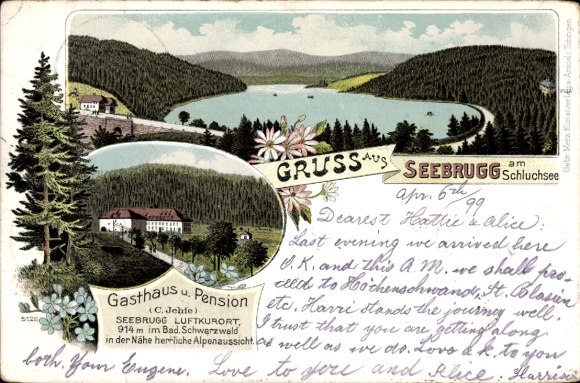 GRUSS AUS SEEBRUGG am Schluchsee
Gebr. Metz Kunstverlags Anstalt Tübingen
Gasthaus u. Pension
(C. Jehle)
SEEBRUGG LUFTKURORT,
914 m im Bad. Schwarzwald
in der Nähe herrliche Alpenaussicht.
5128
Apr. 6th/99
Dearest Hattie & Alice:
Last evening we arrived here
O.K. and this A.M. we shall pro-
ceed to Höchenschwand, St. Blasien
etc. Harri stands the journey well.
I trust that you are getting along
as well as we do. Love & k. to you
both, Your Eugene. Love to you and Alice. Harrie